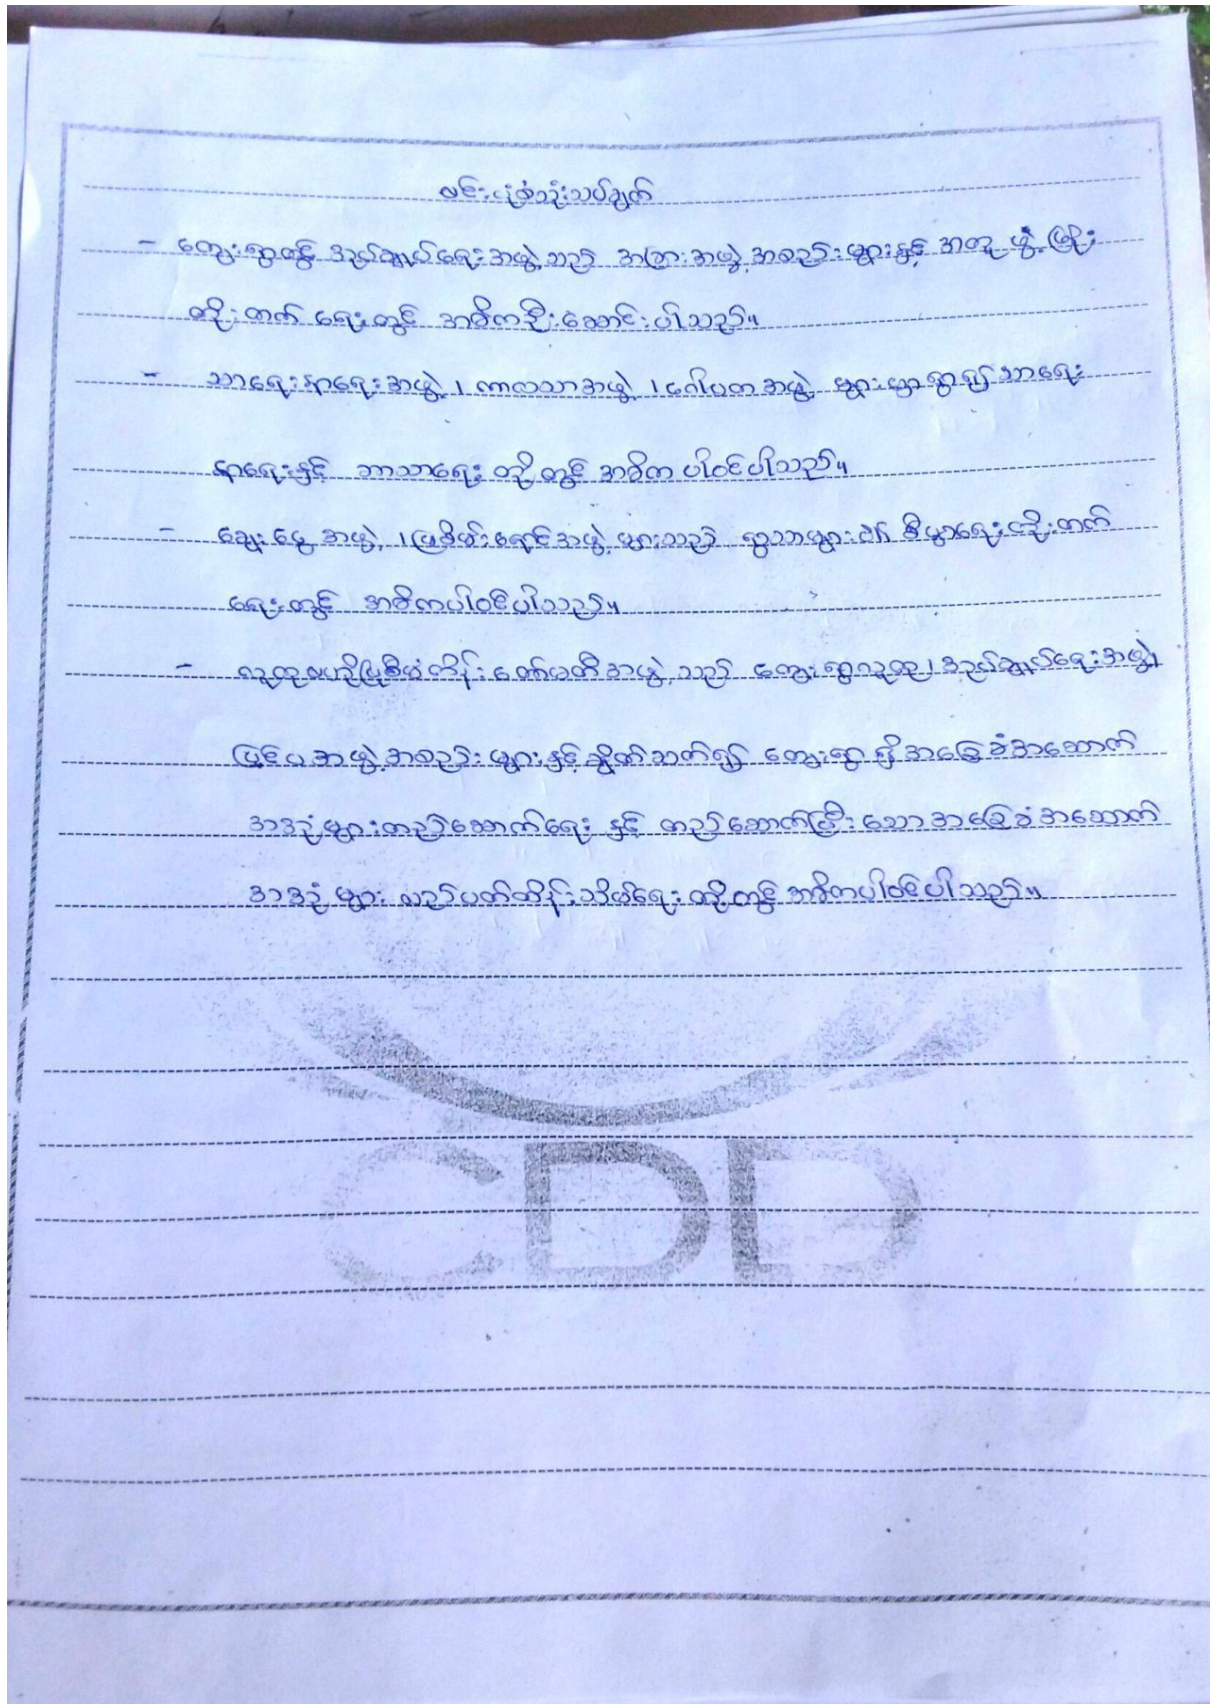 ဗင်းပုံစံသုံးသပ်ချက်
- ကျေးရွာတွင် အုပ်ချုပ်ရေးအဖွဲ့သည် အခြားအဖွဲ့အစည်းများနှင့် အတူ ဖွံ့ဖြိုး
တိုးတက်ရေးတွင် အဓိကဦးဆောင်ပါသည်။
- သာရေးနာရေးအဖွဲ့၊ ကာလသာအဖွဲ့၊ ဂေါပကအဖွဲ့ များမှာရွာ၍သာရေး
နာရေးနှင့် ဘာသာရေး တို့တွင် အဓိက ပါဝင်ပါသည်။
- ချေးငွေ အဖွဲ့၊ မြစိမ်းရောင်အဖွဲ့ များသည် ရွာသားများ၏ စီးပွားရေးတိုးတက်
ရေးတွင် အဓိကပါဝင်ပါသည်။
- လူထုဗဟိုပြုစီမံကိန်း ကော်မတီအဖွဲ့သည် ကျေးရွာလူထု၊ အုပ်ချုပ်ရေးအဖွဲ့၊
ပြင်ပအဖွဲ့အစည်းများနှင့်ချိတ်ဆက်၍ ကျေးရွာရှိအခြေခံအဆောက်
အအုံများတည်ဆောက်ရေး နှင့် တည်ဆောက်ပြီးသောအခြေခံအဆောက်
အအုံများ လည်ပတ်ထိန်းသိမ်းရေး တို့တွင် အဓိကပါဝင်ပါသည်။
CDD